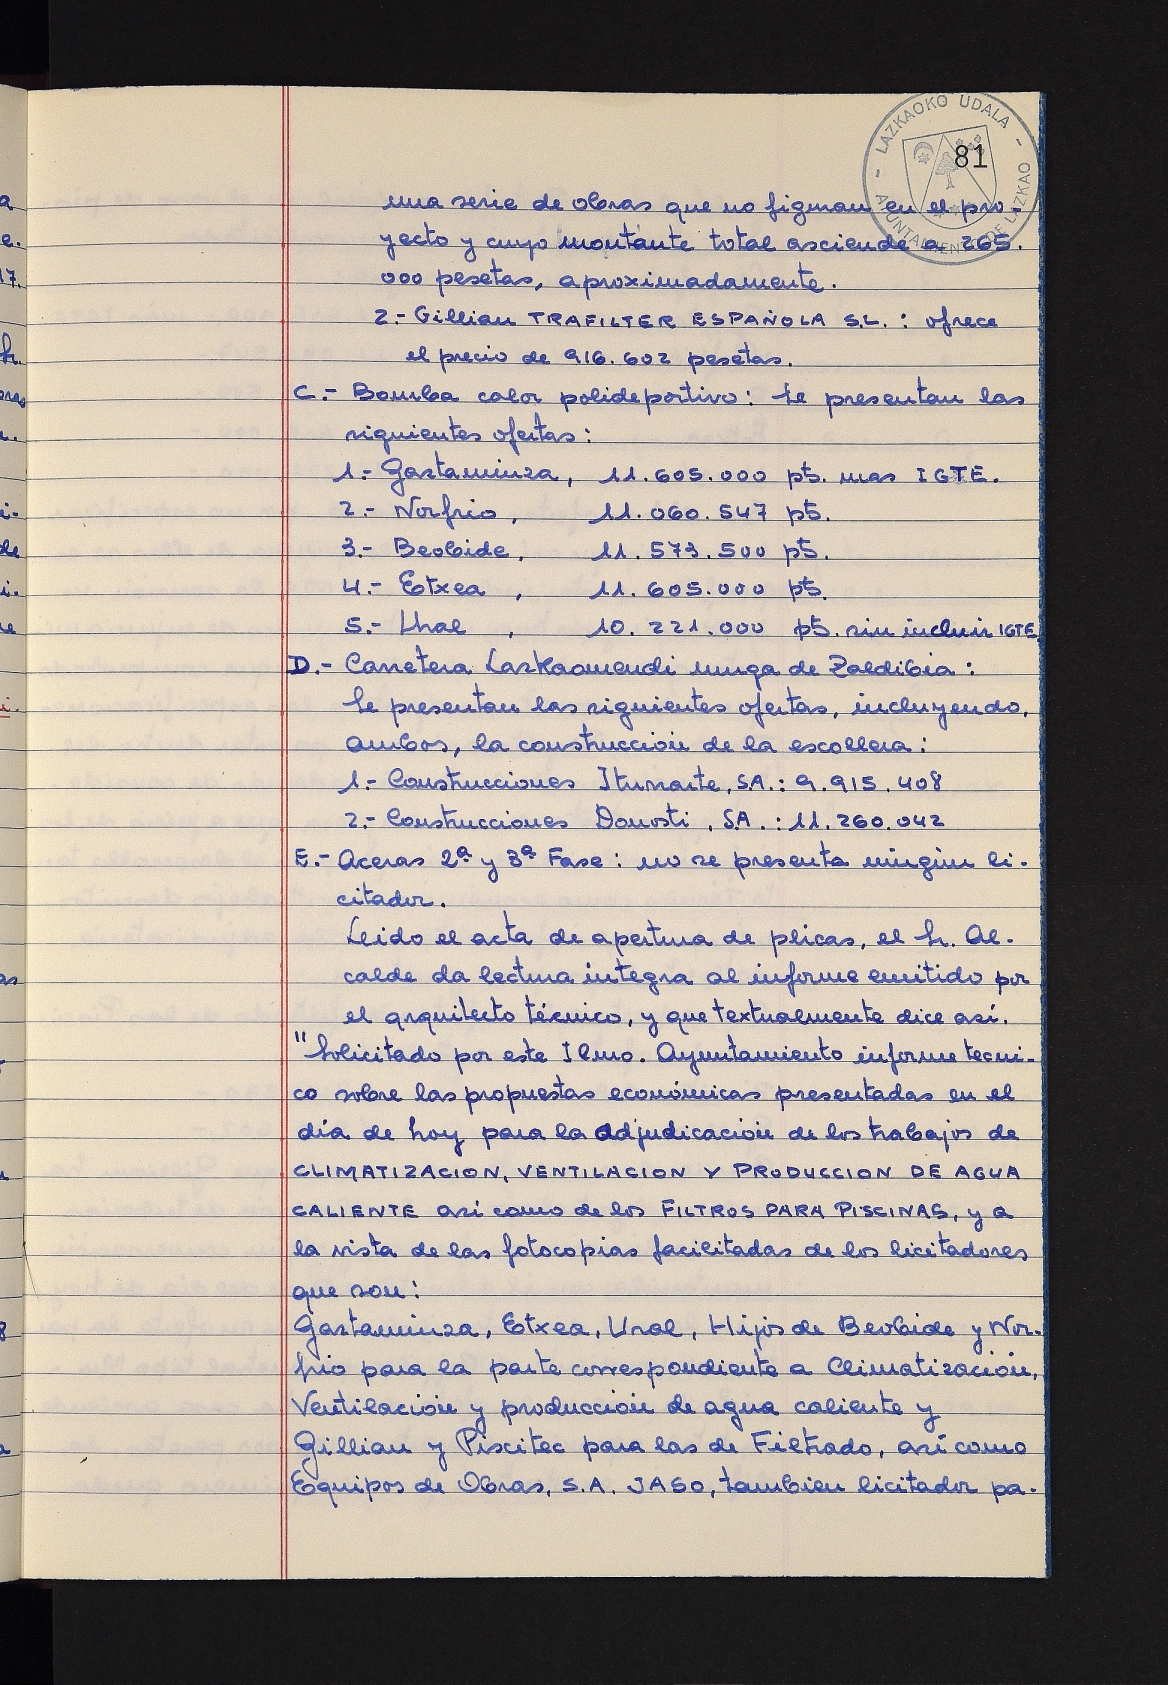 LAZKAOKO UDALA
AYUNTAMIENTO DE LAZKAO
81
una serie de obras que no figuran en el pro-
yecto y cuyo montante total asciende a 265.
000 pesetas, aproximadamente.
2.- Gillian TRAFILTER ESPAÑOLA S.L. : ofrece
el precio de 916.602 pesetas.
C.- Bomba calor polideportivo: Se presentan las
siguientes ofertas:
1.- Gaztaminza, 11.605.000 pts. mas IGTE.
2.- Norfrio, 11.060.547 pts.
3.- Beobide, 11.573.500 pts.
4.- Etxea, 11.605.000 pts.
5.- Ural, 10.221.000 pts. sin incluir IGTE
D.- Carretera Lazkaomendi muga de Zaldibia:
Se presentan las siguientes ofertas, incluyendo,
ambos, la construcción de la escollera:
1.- Construcciones Iturrarte, S.A.: 9.915.408
2.- Construcciones Donosti, S.A.: 11.260.042
E.- Aceras 2ª y 3ª Fase: no se presenta ningún li-
citador.
Leido el acta de apertura de plicas, el Sr. Al-
calde da lectura integra al informe emitido por
el arquitecto técnico, y que textualmente dice así.
"Solicitado por este Ilmo. Ayuntamiento informe tecni-
co sobre las propuestas económicas presentadas en el
día de hoy para la adjudicación de los trabajos de
CLIMATIZACION, VENTILACION Y PRODUCCION DE AGUA
CALIENTE así como de los FILTROS PARA PISCINAS, y a
la vista de las fotocopias facilitadas de los licitadores
que son:
Gaztaminza, Etxea, Ural, Hijos de Beobide y Nor-
frio para la parte correspondiente a Climatización,
Ventilación y producción de agua caliente y
Gillian y Piscitec para las de Filtrado, así como
Equipos de Obras, S.A. JASO, tambien licitador pa-